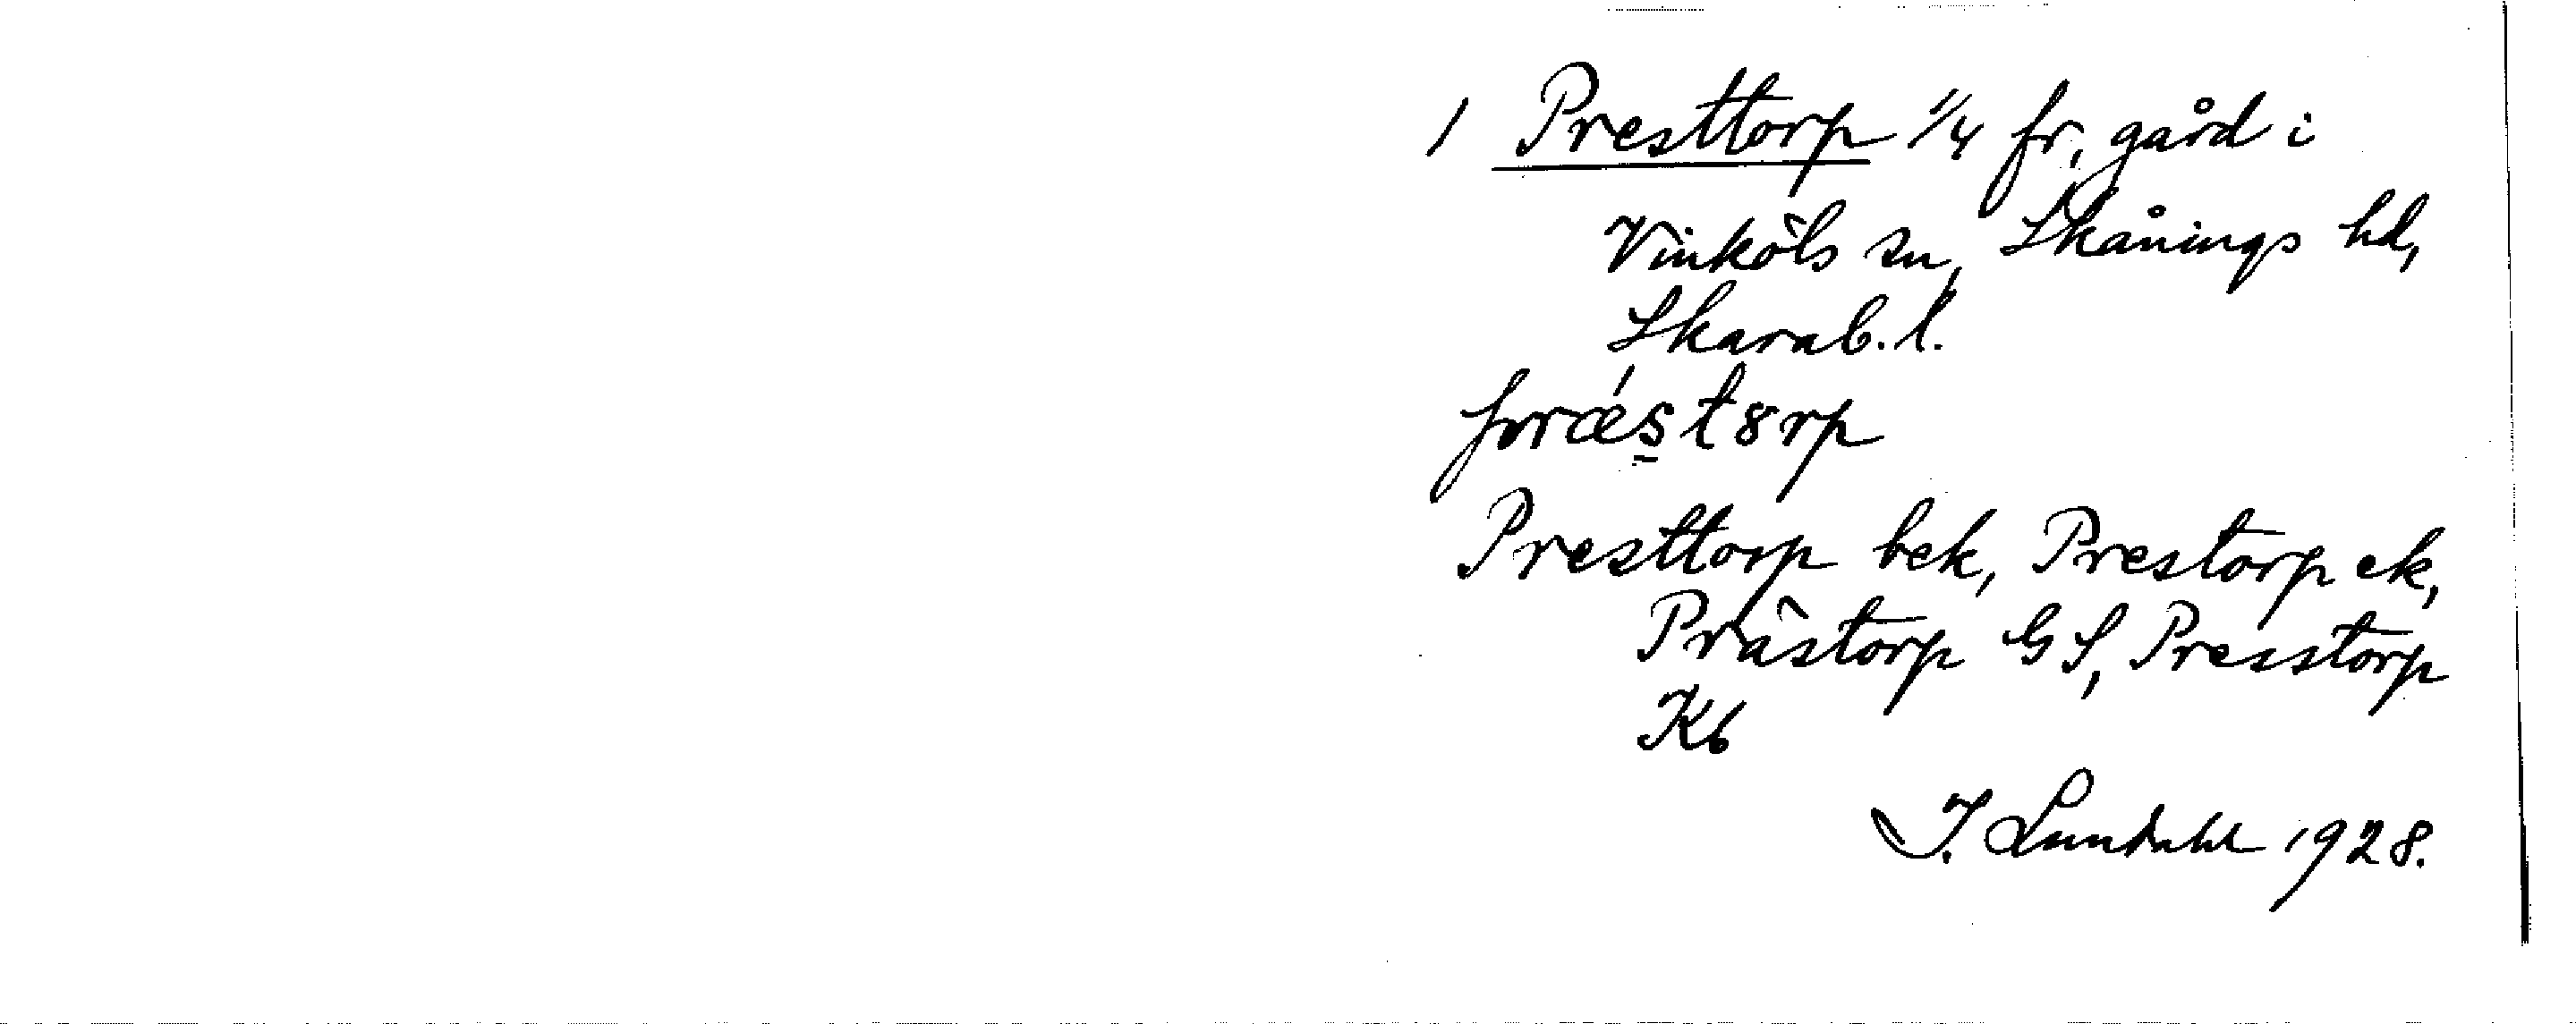 1 Presttorp 1/4 fr, gård i
Vinköls sn, Skånings hd,
Skarab. l.
præ´st8rp
Presttorp bek, Prestorp ek,
Prästorp GS, Presstorp
Kb
I. Lundahl 1928.